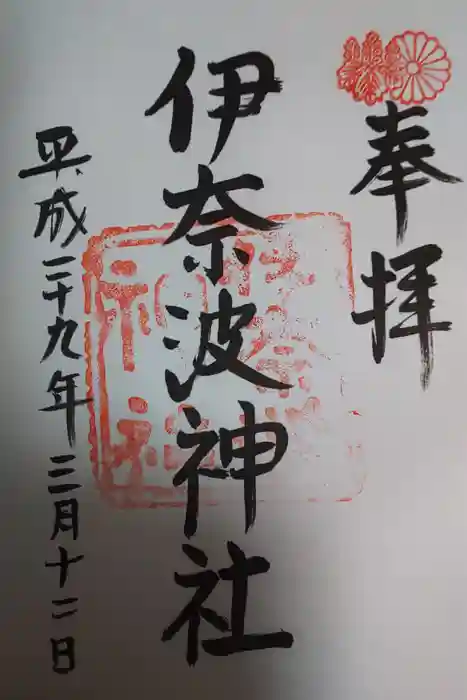 奉拝
伊奈波神社
平成二十九年三月十二日